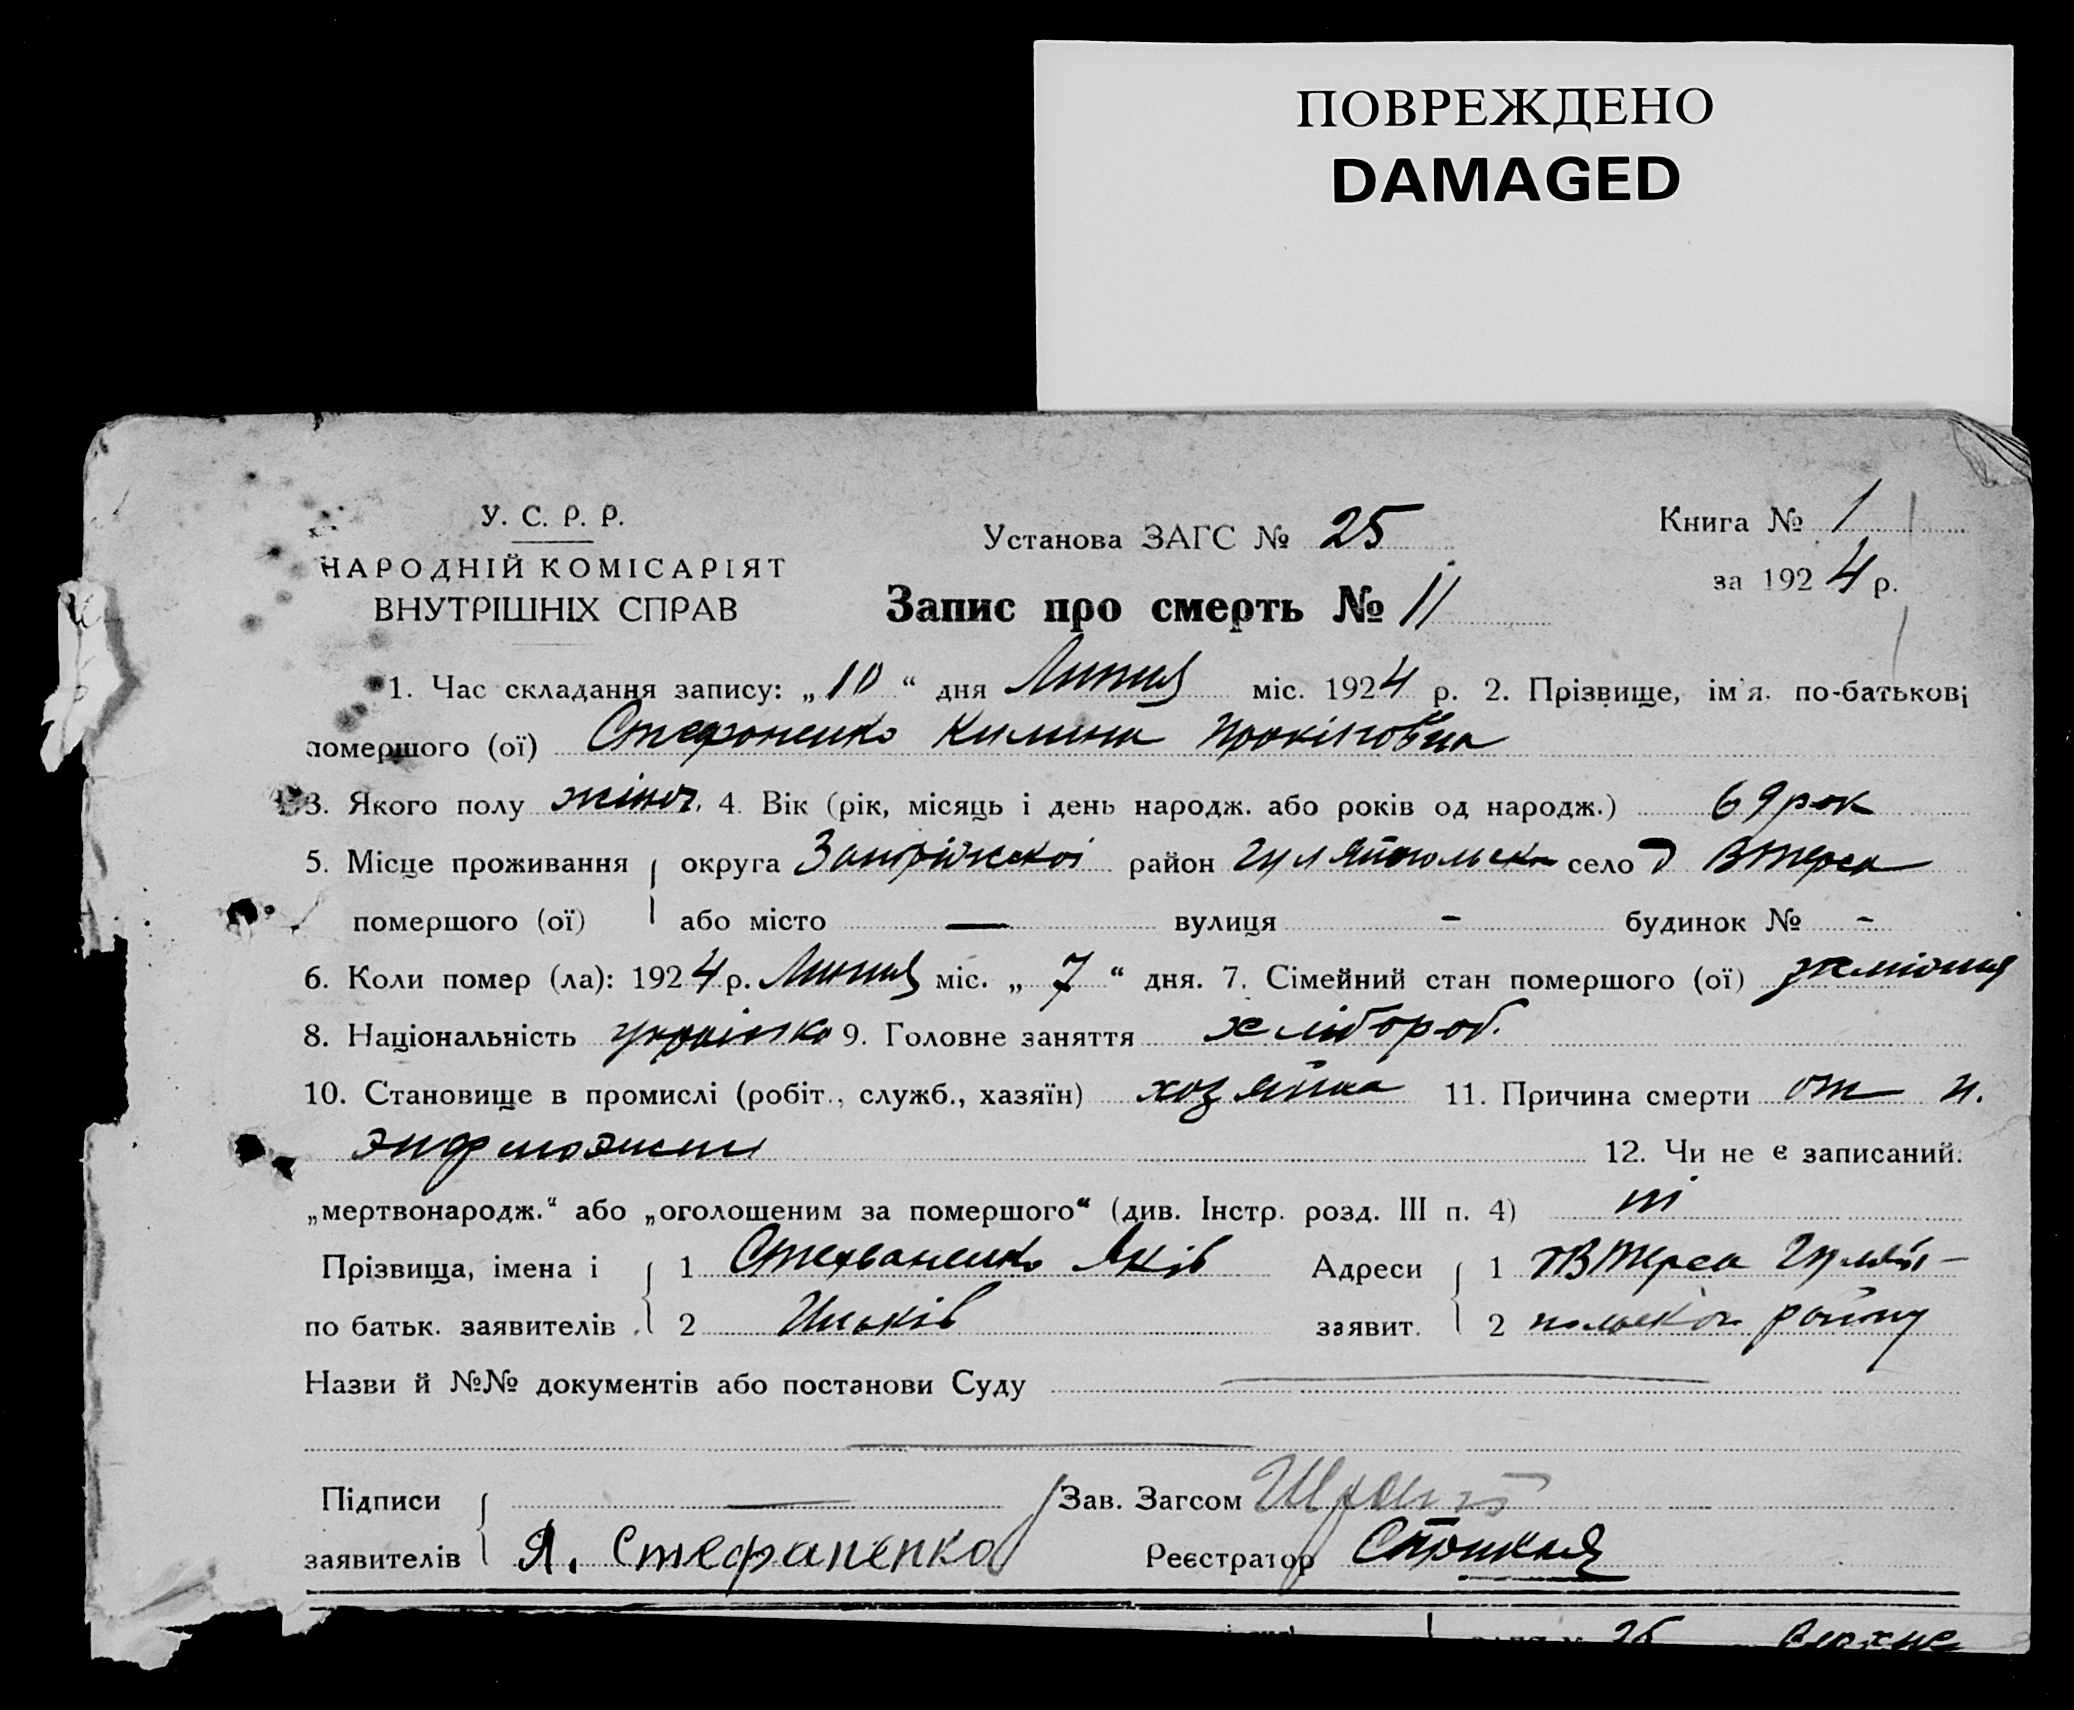 ПОВРЕЖДЕНО
DAMAGED
У. С. Р. Р.
НАРОДНІЙ КОМІСАРІЯТ
ВНУТРІШНІХ СПРАВ
Установа ЗАГС № 25
Книга № 1
за 1924 р.
Запис про смерть № 11
1. Час складання запису: „10“ дня Липня міс. 1924 р. 2. Прізвище, ім'я. по-батькові
помершого (ої) Стефаненко Килина
3. Якого полу жіноч. 4. Вік (рік, місяць і день народж. або років од народж.) 69 рок
5. Місце проживання округа район Гуляйпольськ село
помершого (ої) або місто — вулиця - будинок № -
6. Коли помер (ла): 1924 р. Липня міс. „7“ дня. 7. Сімейний стан помершого (ої)
8. Національність українка 9. Головне заняття хлібороб.
10. Становище в промислі (робіт., служб., хазяїн) хозяйка 11. Причина смерти от
12. Чи не є записаний:
„мертвонародж.“ або „оголошеним за помершого“ (див. Інстр. розд. III п. 4) ні
Прізвища, імена і 1 Стехваненко Яків Адреси 1
по батьк. заявителів 2 заявит. 2 району
Назви й №№ документів або постанови Суду
Підписи Зав. Загсом
заявителів Я. Стефаненко Реєстратор